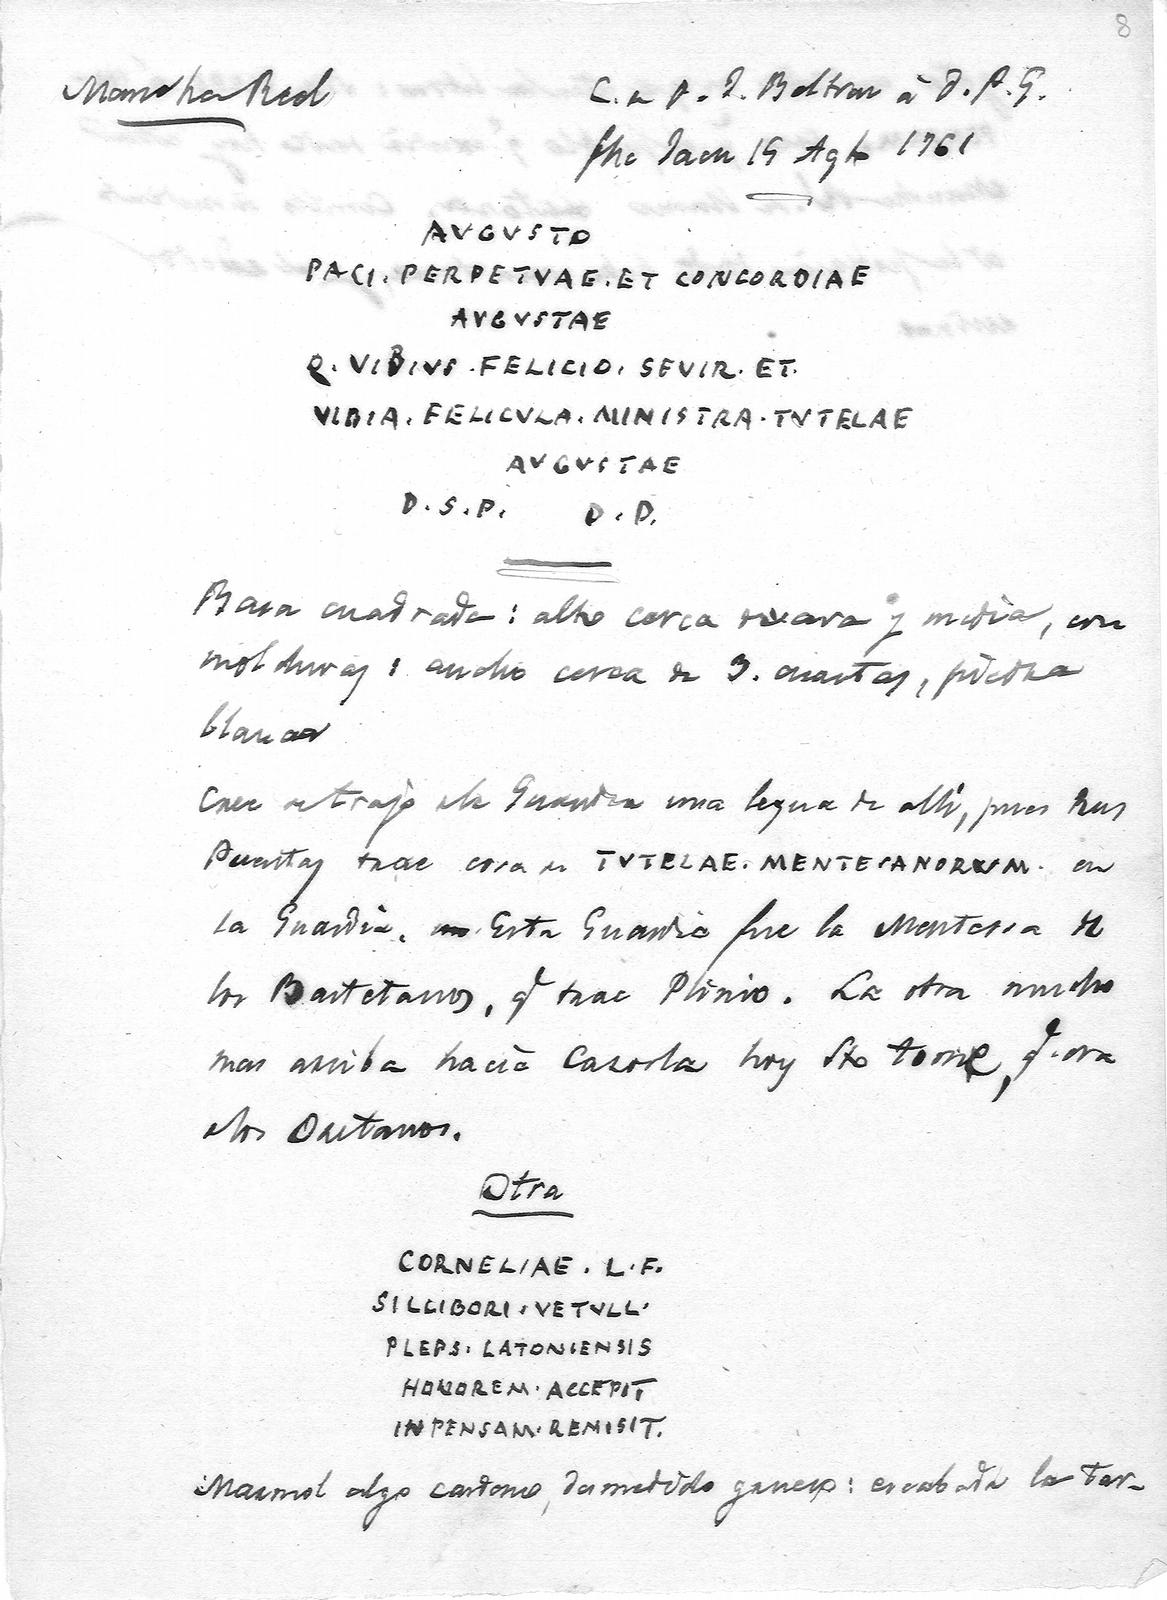 8
Mancha Real
C. de D. J. Beltran â D. P. G.
fho Jaen 19 Agto 1761
AVGVSTO
PACI. PERPETVAE. ET CONCORDIAE
AVGVSTAE
Q. VIBIVS. FELICIO. SEVIR. ET.
VIBIA. FELICVLA. MINISTRA. TVTELAE
AVGVSTAE
D. S. P. D. D.
Basa cuadrada: alto cerca de vara y media, con
molduras: ancho cerca de 3. cuartas, piedra
blanca
Cree se trajo de la Guardia una legua de alli, pues Rus
Puerta trae cosa de TVTELAE. MENTESANORUM. en
la Guardia. Esta Guardia fue la Mentessa de
los Bastetanos, q trae Plinio. La otra mucho
mas arriba hacia Cazorla hoy Sto tome, q. era
de los Oretanos.
Otra
CORNELIAE. L. F.
SILLIBORI. VETVLL.
PLEPS. LATONIENSIS
HONOREM. ACCEPIT
INPENSAM. REMISIT.
Marmol algo cardeno, grueso: escabada la tar-